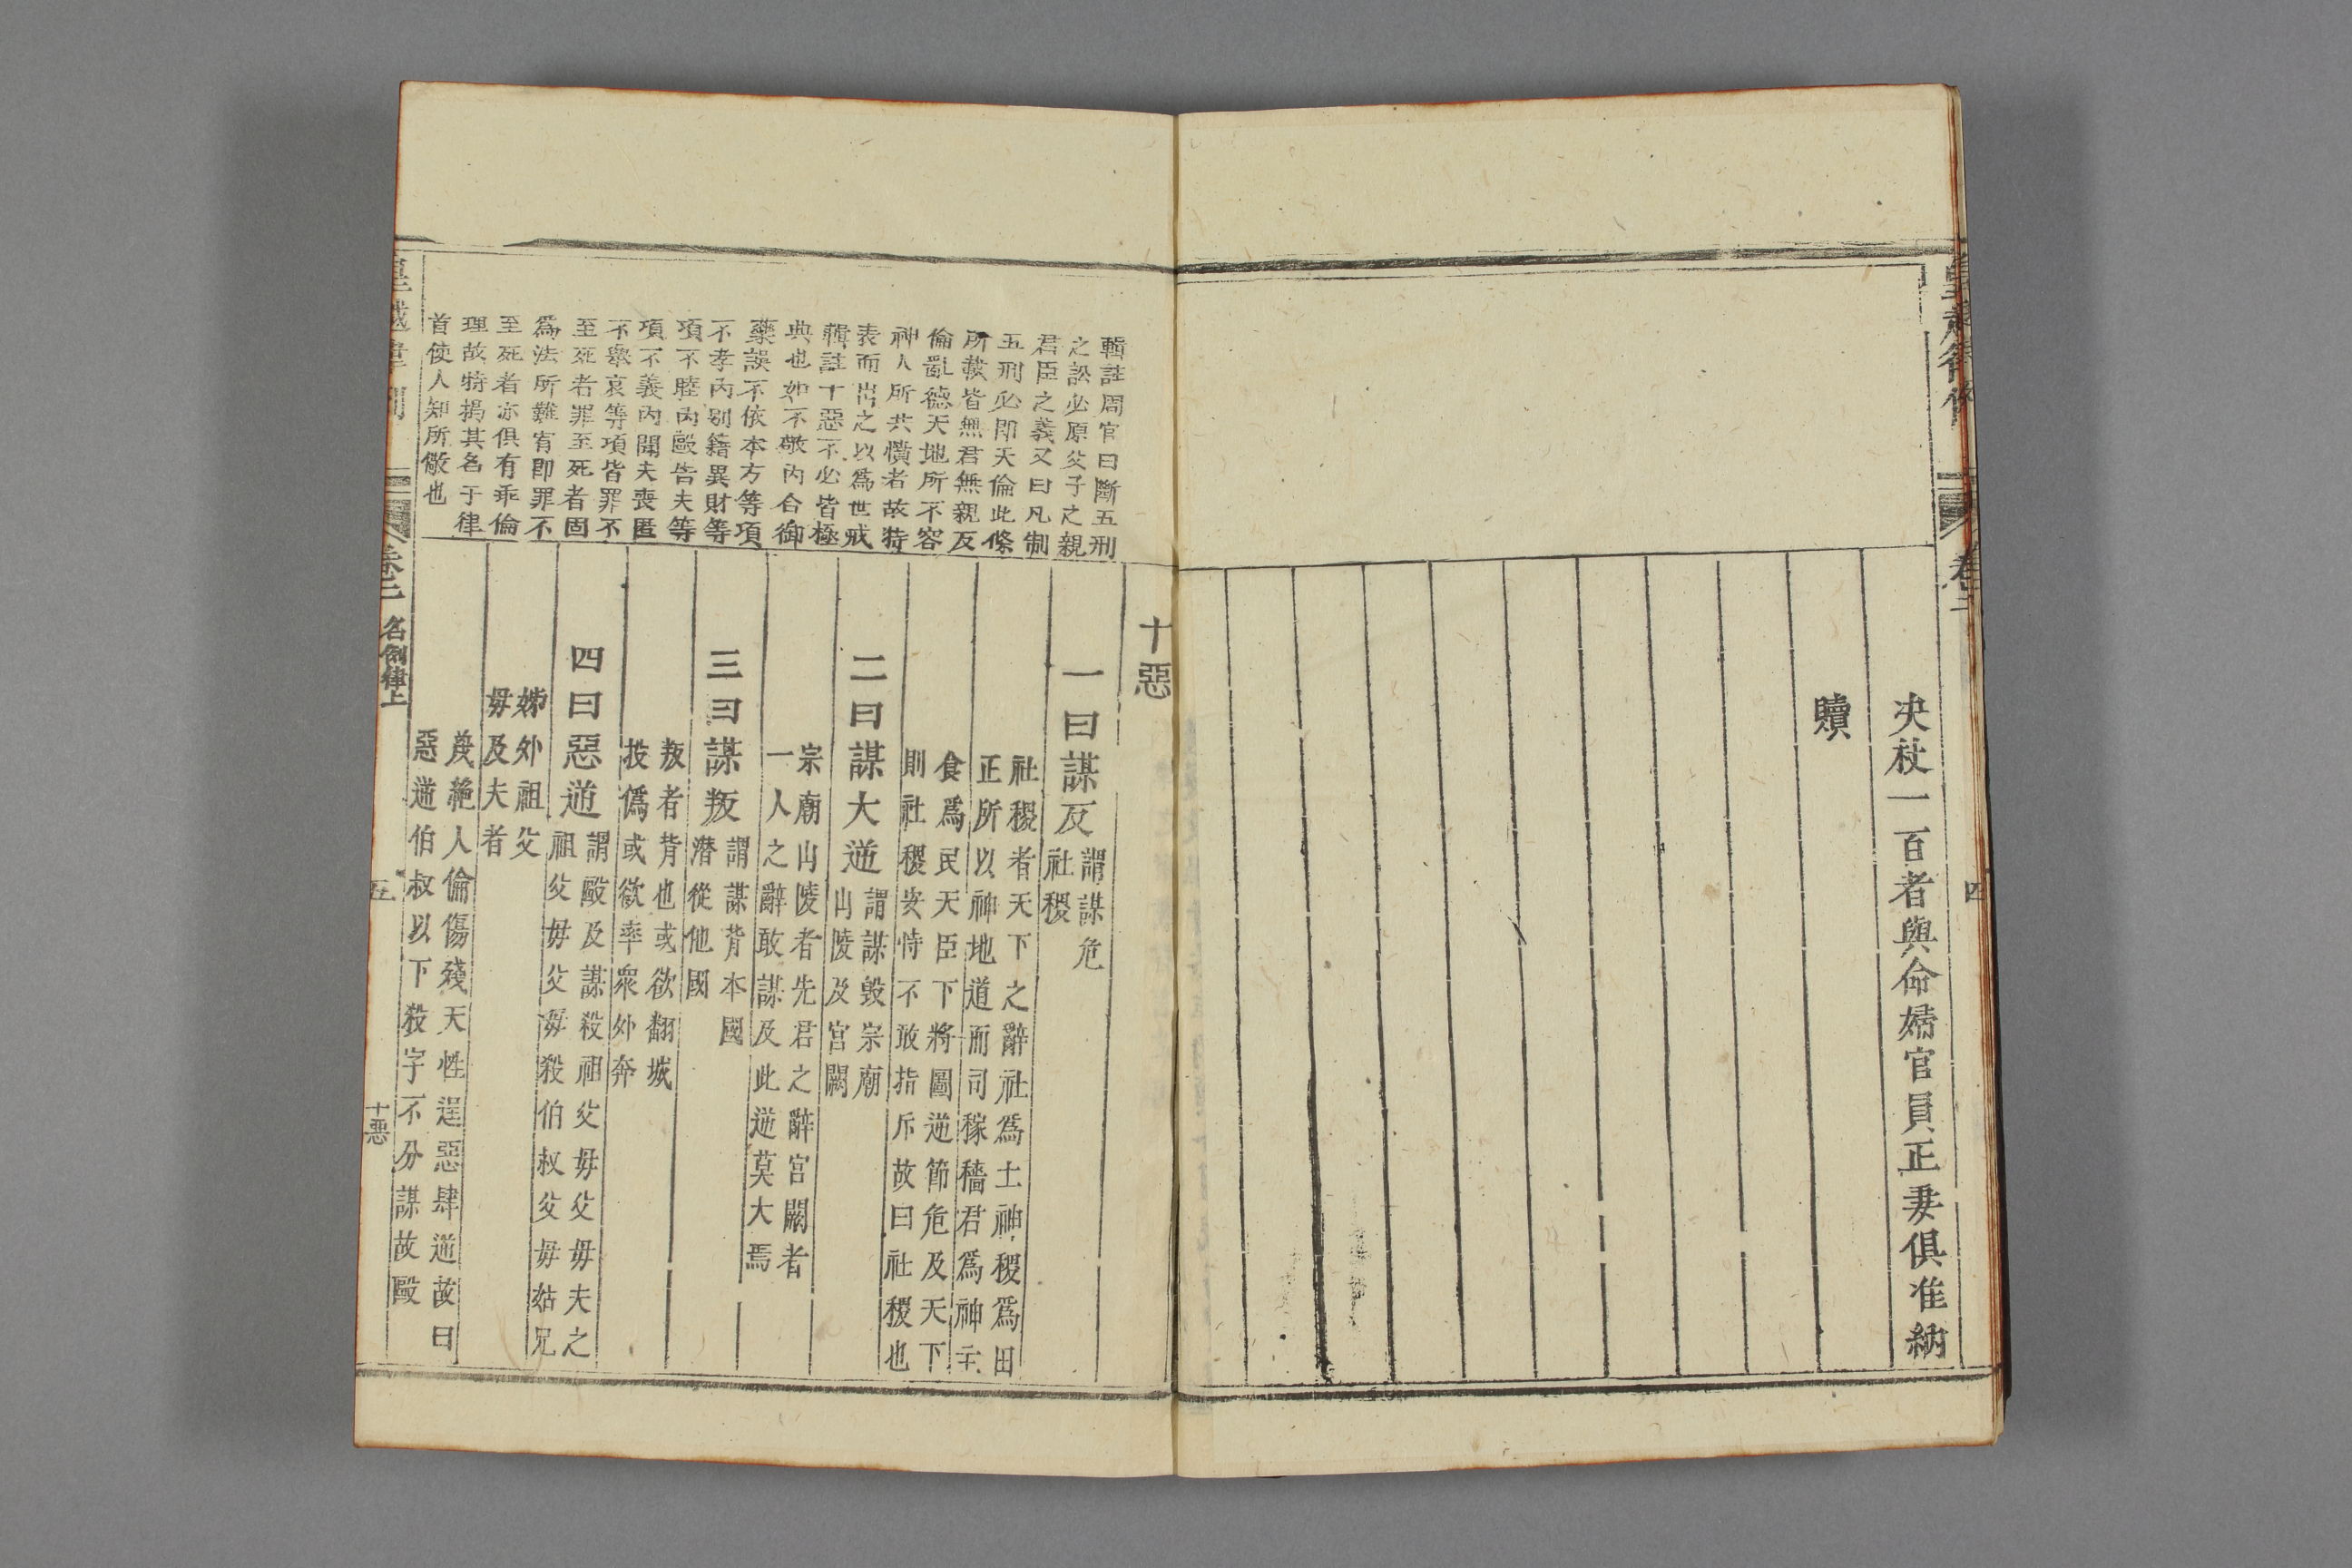 決杖一百者與命婦官員正妻俱准納
贖
四
輯註周官曰斷五刑
之訟必原父子之親
君臣之義又曰凡制
五刑必即天倫此條
所載皆無君無親反
倫亂德天地所不容
神人所共憤者故特
表而出之以為世戒
輯註十惡不必皆極
典也如不敬內合御
藥誤不依本方等項
不孝內別籍異財等
項不睦內毆告夫等
項不義內聞夫喪匿
不舉哀等項皆罪不
至死者罪至死者固
為法所難宥即罪不
至死者亦俱有乖倫
理故特揭其名于律
首使人知所儆也
十惡
一曰謀反謂謀危
社稷
社稷者天下之辭社爲土神稷爲田
正所以神地道而司稼穡君爲神主
食爲民天臣下將圖逆節危及天下
則社稷安恃不敢指斥故曰社稷也
二曰謀大逆謂謀毀宗廟
山陵及宮闕
宗廟山陵者先君之辭宮闕者
一人之辭敢謀及此逆莫大焉
三曰謀叛謂謀背本國
潛從他國
叛者背也或欲翻城
投僞或欲率衆外奔
四曰惡逆謂毆及謀殺祖父母父母夫之
祖父母父母殺伯叔父母姑兄
姊外祖父
母及夫者
蔑絶人倫傷殘天性逞惡肆逆故曰
惡逆伯叔以下殺字不分謀故毆
卷二
名例律上
五
十惡